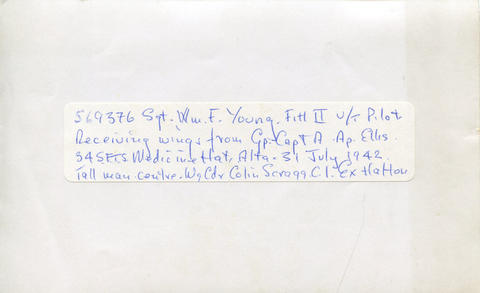 569376 Sgt. Wm. F. Young. Fitt II U/T Pilot
Receiving wings from Gp. Capt A. Ap. Ellis.
34 SFTS Medicine Hat, Alta. 31 July 1942.
Tall man centre. Wg Cdr Colin Scragg C.I. Ex Halton